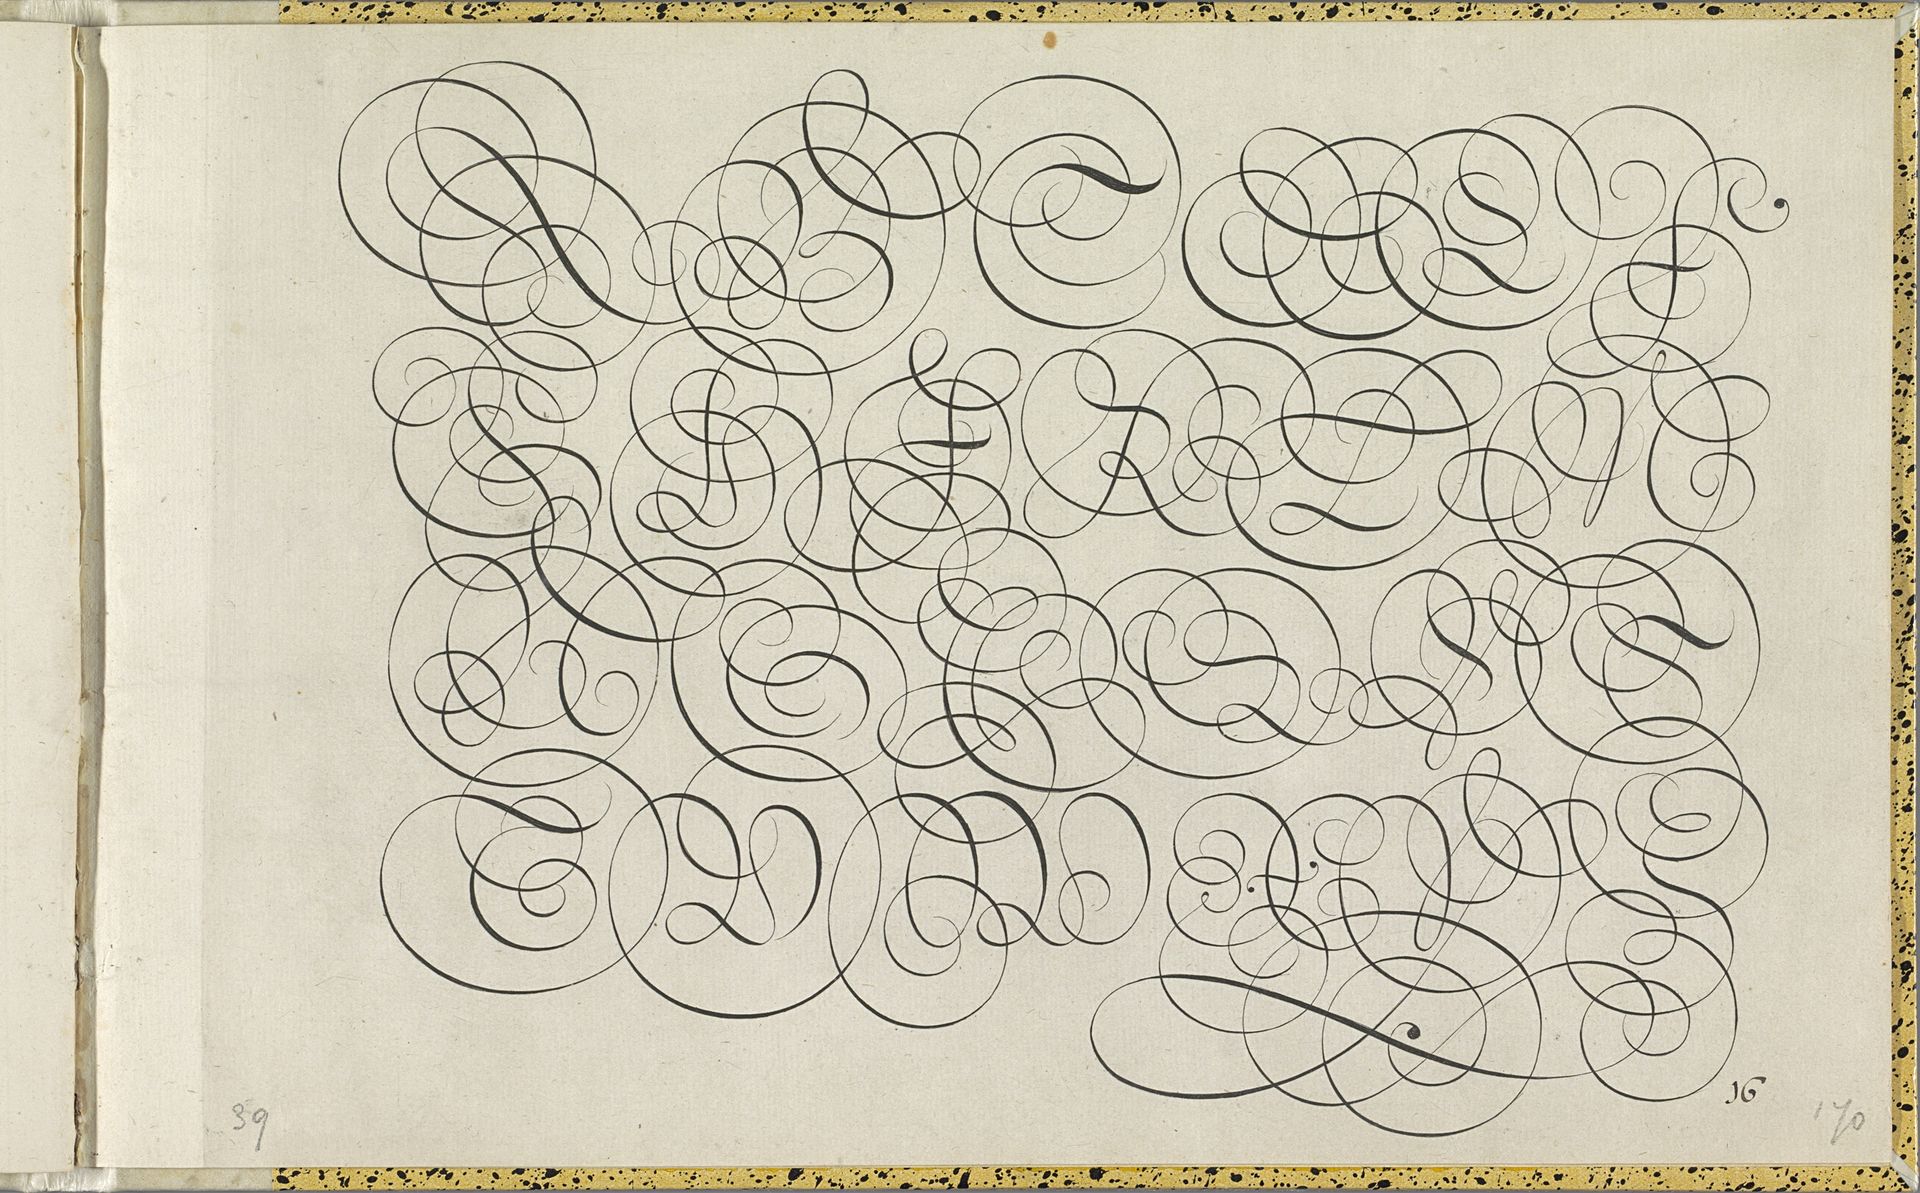 A B C D E F
G H I K L M
N O P Q R S
T V W X Y Z
16
39
170